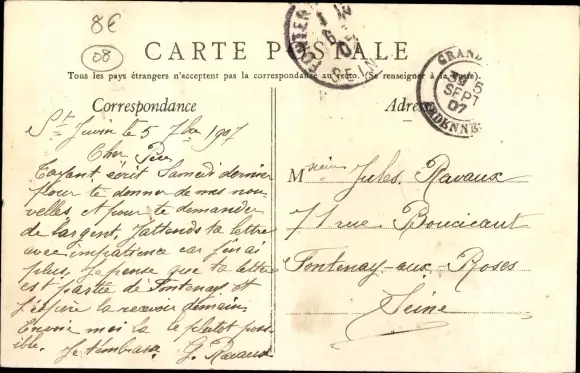 8€
08
CARTE POSTALE
Tous les pays étrangers n'acceptent pas la correspondance au recto. (Se renseigner à la poste).
Correspondance
Adresse
St Juvin le 5 7bre 1907
Cher Père
T'ayant écrit Samedi dernier
pour te donner de mes nou-
velles, et pour te demander
de l'argent, j'attends ta lettre
avec impatience car j'en ai
plus. Je pense que ta lettre
est partie de Fontenay et
j'espère la recevoir demain.
Envoie moi la le plutôt poss-
ible. Je t'embrasse. G. Ravaux
Monsieur Jules Ravaux
71 rue Boucicaut
Fontenay-aux-Roses
Seine
FONTEN
6
SEINE
GRAND
5
SEPT
07
ARDENNES